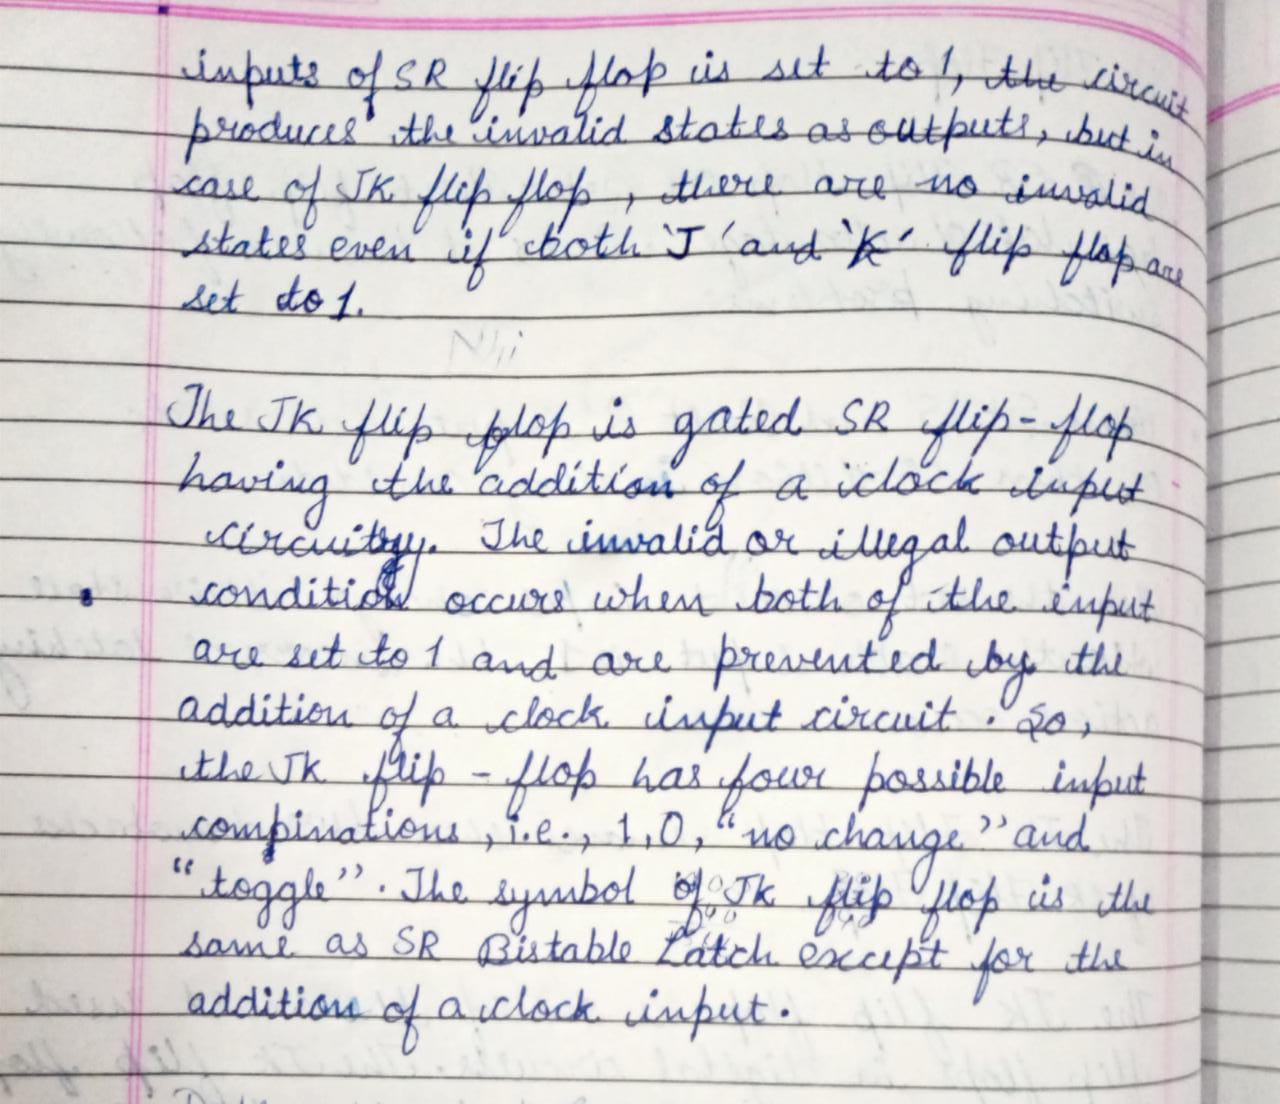 inputs of SR flip flop is set to 1, the circuit
produces the invalid states as outputs, but in
case of JK flip flop, there are no invalid
states even if both 'J' and 'K' flip flop are
set to 1.
The JK flip flop is gated SR flip-flop
having the addition of a clock input
circuitry. The invalid or illegal output
condition occurs when both of the input
are set to 1 and are prevented by the
addition of a clock input circuit. So,
the JK flip-flop has four possible input
compinations, i.e., 1,0, "no change" and
"toggle". The symbol of JK flip flop is the
same as SR Bistable Latch except for the
addition of a clock input.